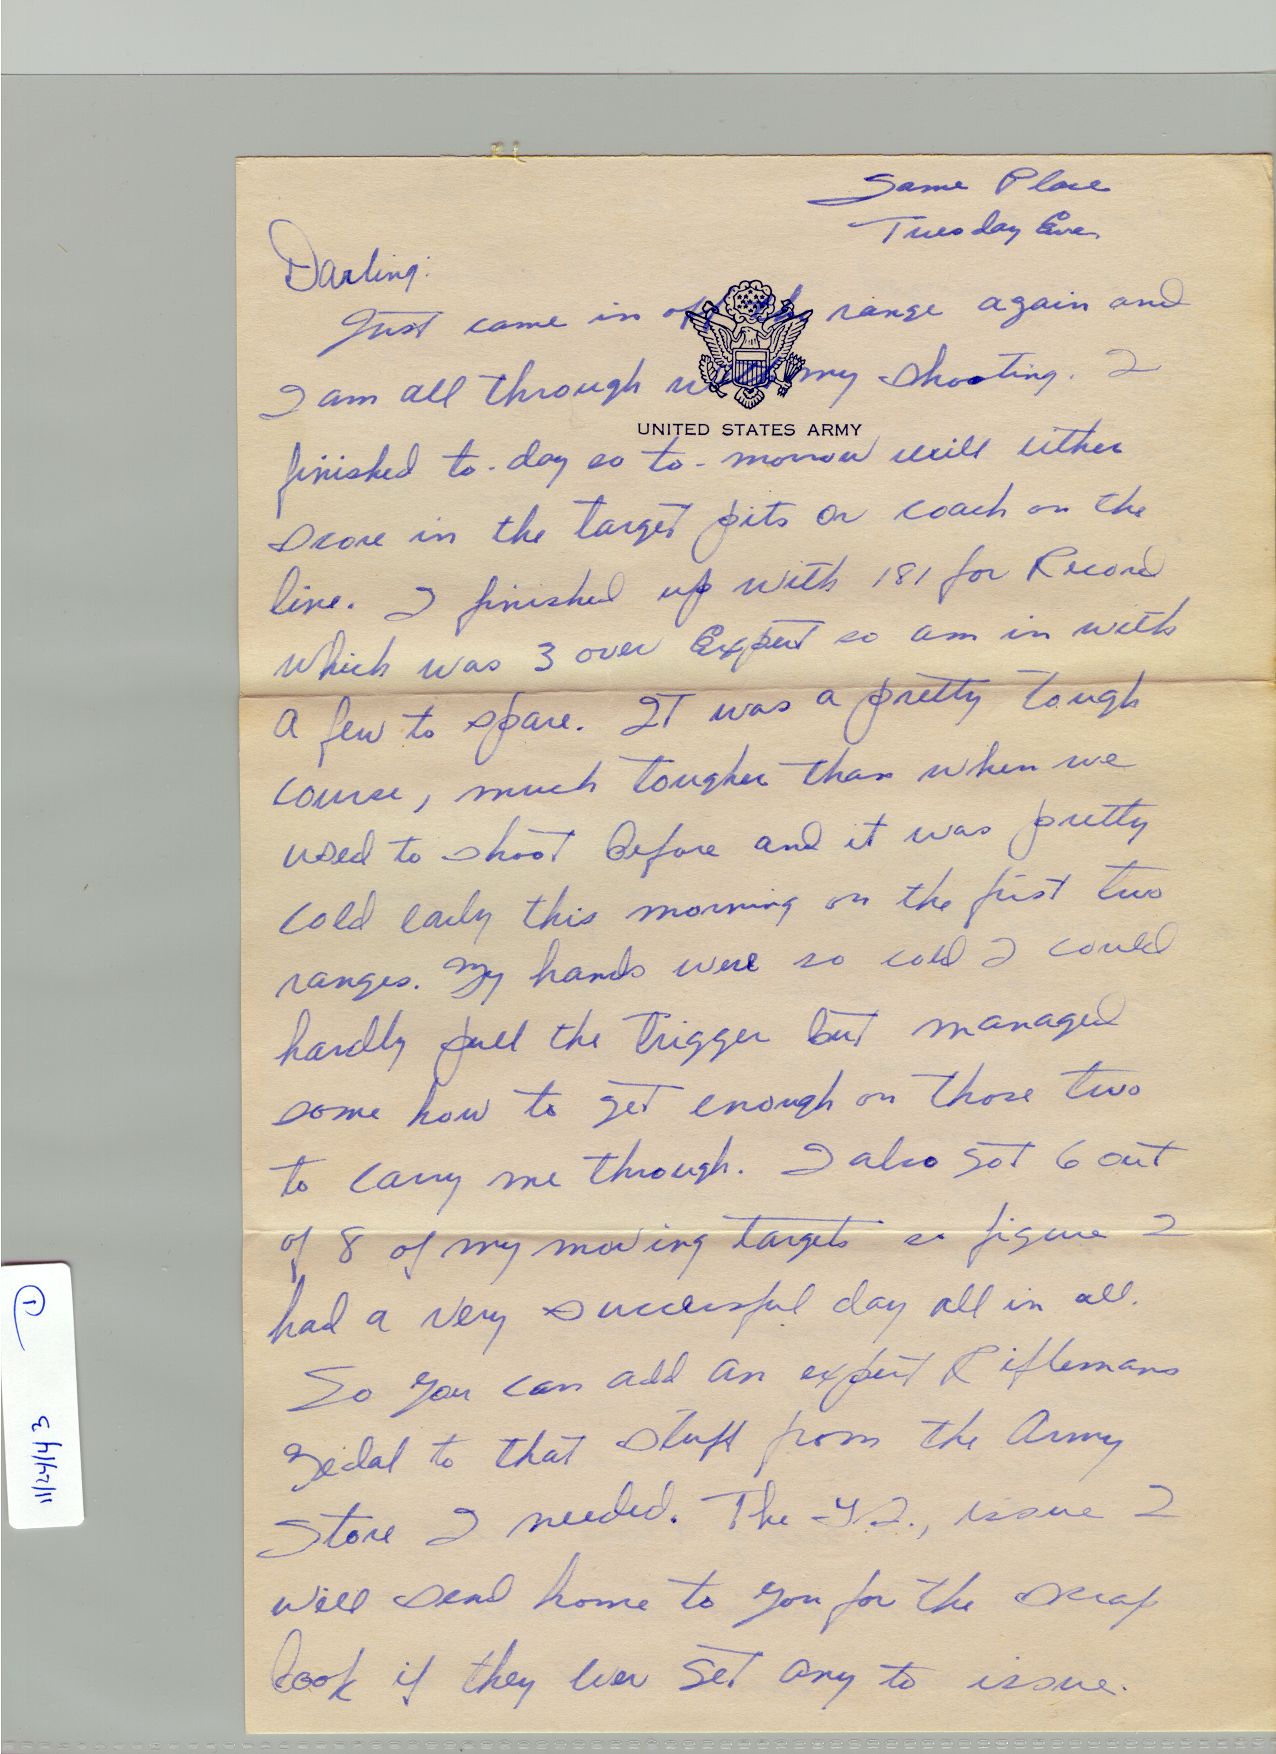 Same Place
Tuesday Eve.
Darling:
Just came in off the range again and
I am all through with my shooting. I
UNITED STATES ARMY
finished to-day so to-morrow will either
score in the target pits or coach on the
line. I finished up with 181 for Record
which was 3 over Expert so am in with
a few to spare. It was a pretty tough
course, much tougher than when we
used to shoot before and it was pretty
cold early this morning on the first two
ranges. My hands were so cold I could
hardly pull the trigger but managed
some how to get enough on those two
to carry me through. I also got 6 out
of 8 of my moving targets so figure I
had a very successful day all in all.
So you can add an expert Riflemans
Medal to that stuff from the Army
Store I needed. The G.I., issue I
will send home to you for the scrap
book if they ever get any to issue.
1
11/24/43